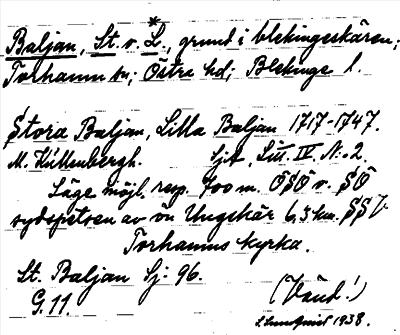 *
Baljan, St. o. L., grund i blekingeskären;
Torhamn sn; Östra hd; Blekinge l.
Stora Baljan, Lilla Baljan 1717-1747.
M. Küllenbergh. Sjk. Lit. IV. N:o 2.
Läge möjl. resp. 400 m. OSO o. SO
sydspetsen av ön Ungskär 6,3 km. SSV
Torhamns kyrka.
St. Baljan Sj: 96.
G. 11. (Vänd!)
Lundquist 1938.